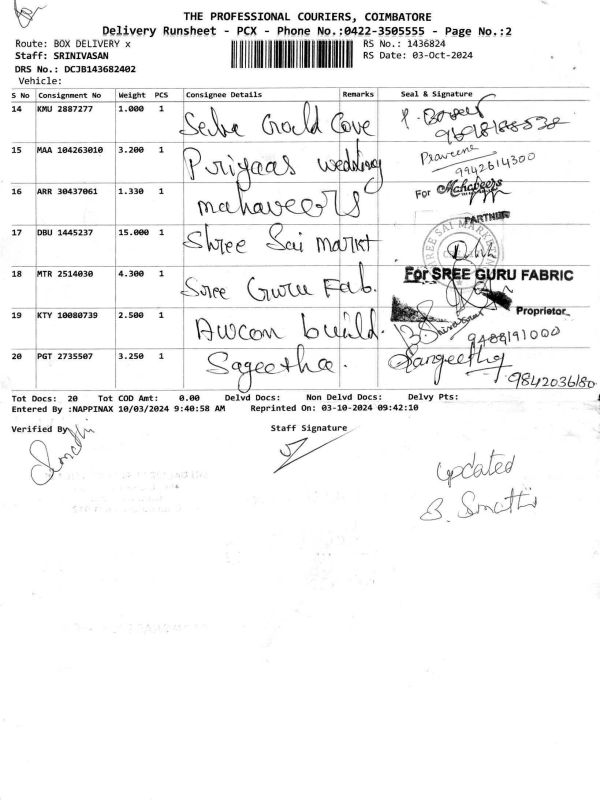 THE PROFESSIONAL COURIERS, COIMBATORE
Delivery Runsheet - PCX - Phone No.:0422-3505555 - Page No.:2
Route: BOX DELIVERY x RS No.: 1436824
Staff: SRINIVASAN RS Date: 03-Oct-2024
DRS No.: DCJB143682402
Vehicle:
S No Consignment No Weight PCS Consignee Details Remarks Seal & Signature
14 KMU 2887277 1.000 1 Seiba Gould Cove
15 MAA 104263010 3.200 1 Priyaas wedding Praveena 9942614300
16 ARR 30437061 1.330 1 mahaveers For Mahaveers
PARTNER
17 DBU 1445237 15.000 1 Shree Sai Markt SHREE SAI MARK
18 MTR 2514030 4.300 1 Sree Guru Fab. For SREE GURU FABRIC
Proprietor
19 KTY 10080739 2.500 1 Awcom build. 9488191000
20 PGT 2735507 3.250 1 Sageetha. Sangeetha 9842036180
Tot Docs: 20 Tot COD Amt: 0.00 Delvd Docs: Non Delvd Docs: Delvy Pts:
Entered By :NAPPINAX 10/03/2024 9:40:58 AM Reprinted On: 03-10-2024 09:42:10
Verified By Staff Signature
updated